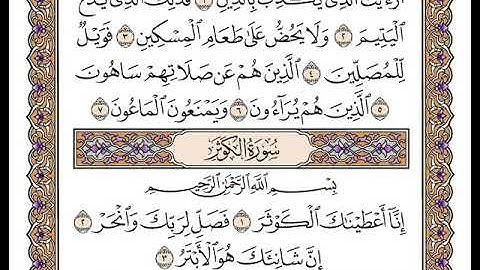 أَرَءَيْتَ ٱلَّذِى يُكَذِّبُ بِٱلدِّينِ ١ فَذَٰلِكَ ٱلَّذِى يَدُعُّ
ٱلْيَتِيمَ ٢ وَلَا يَحُضُّ عَلَىٰ طَعَامِ ٱلْمِسْكِينِ ٣ فَوَيْلٌ
لِّلْمُصَلِّينَ ٤ ٱلَّذِينَ هُمْ عَن صَلَاتِهِمْ سَاهُونَ
٥ ٱلَّذِينَ هُمْ يُرَآءُونَ ٦ وَيَمْنَعُونَ ٱلْمَاعُونَ ٧
سُورَةُ الكَوْثَرِ
بِسْمِ ٱللَّهِ ٱلرَّحْمَٰنِ ٱلرَّحِيمِ
إِنَّآ أَعْطَيْنَاكَ ٱلْكَوْثَرَ ١ فَصَلِّ لِرَبِّكَ وَٱنْحَرْ ٢
إِنَّ شَانِئَكَ هُوَ ٱلْأَبْتَرُ ٣